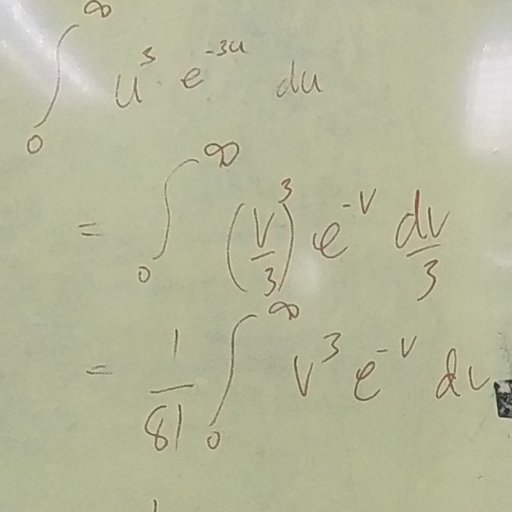 ∫₀^∞ u³ e^{-3u} du
= ∫₀^∞ (v/3)³ e^{-v} dv/3
= 1/81 ∫₀^∞ v³ e^{-v} dv